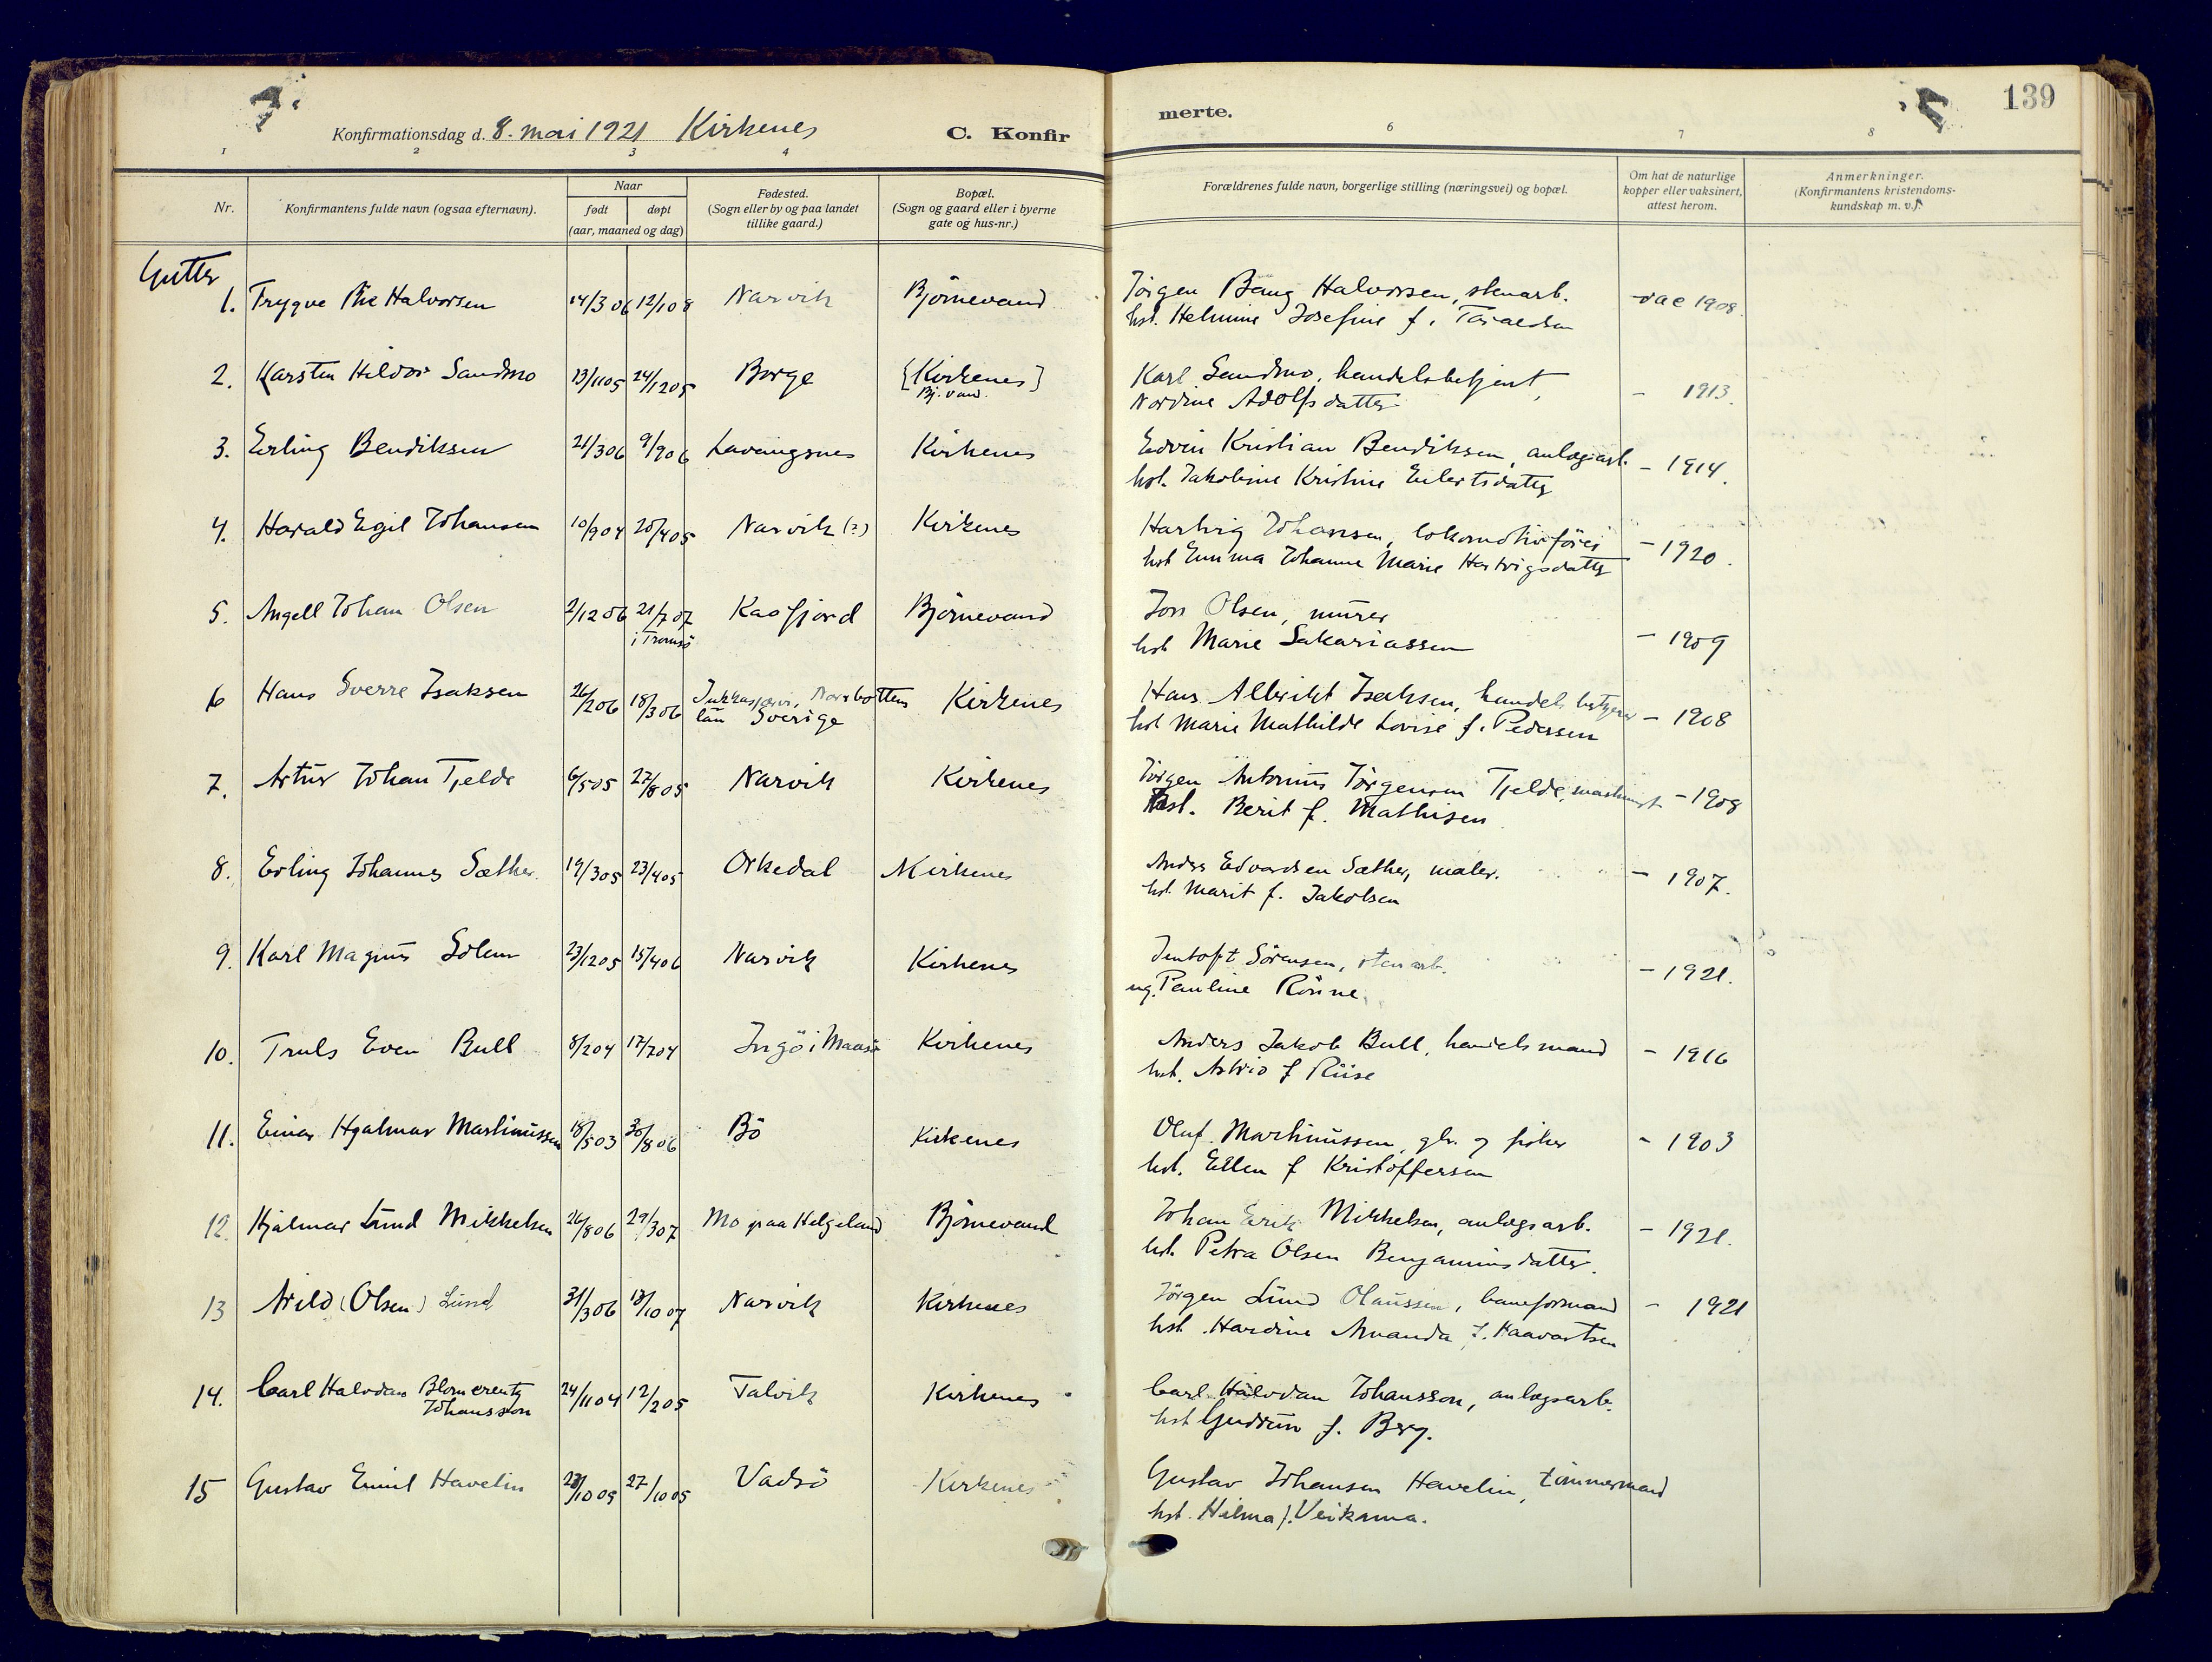 139
Konfirmationsdag d. 8. mai 1921 Kirkenes
C. Konfirmerte.
1 2 3 4 6 7 8
Nr.
Konfirmantens fulde navn (ogsaa efternavn).
Naar
født døpt
(aar, maaned og dag)
Fødested.
(Sogn eller by og paa landet
tillike gaard.)
Bopæl.
(Sogn og gaard eller i byerne
gate og hus-nr.)
Forældrenes fulde navn, borgerlige stilling (næringsvei) og bopæl.
Om hat de naturlige
kopper eller vaksinert,
attest herom.
Anmerkninger.
(Konfirmantens kristendoms-
kundskap m. v.).
Gutter
1. Trygve Halvorsen 14/3 06 12/1 08 Narvik Björnevand Jörgen Bang Halvorsen, stenarb. vac 1908.
hst. Helmine Josefine f.
2. Karsten Hildor Sandmo 13/11 05 24/12 05 Borge [Kirkenes] Karl Sandmo, handelsbetjent, - 1913.
Bj.vand. Nordine Adolfsdatter
3. Erling Bendiksen 21/3 06 9/9 06 Lavangsnes Kirkenes Edvin Kristian Bendiksen, anlægsarb. - 1914.
hst. Jakobine Kristine Eilertsdatter
4. Harald Egil Johansen 10/9 04 20/4 05 Narvik (?) Kirkenes Hartvig Johansen, lokomotivförer - 1920.
hst Emma Johanne Marie Hartvigsdatter
5. Angell Johan Olsen 2/12 06 21/7 07 Kaafjord Björnevand Jon Olsen, murer - 1909
i Tromsö hst Marie Sakariassen
6 Hans Sverre Isaksen 26/2 06 18/3 06 Jukkasjærvi, Norrbottens Kirkenes Hans Albrikt Isaksen, handelsbetjent - 1908
län Sverige hst Marie Mathilde Lovise f. Pedersen
7. Artur Johan Tjelde 6/5 05 27/8 05 Narvik Kirkenes Jörgen Antonius Jörgensen Tjelde, maskinist - 1908
hst. Berit f. Mathisen
8. Erling Johannes Sæther. 19/3 05 23/4 05 Orkedal Kirkenes Anders Edvardsen Sæther, maler. - 1907.
hst. Marit f. Jakobsen
9. Karl Magnus Solem 23/12 05 15/4 06 Narvik Kirkenes Jentoft Sörensen, stenarb. - 1921.
ug. Pauline Rönne.
10. Truls Even Bull 8/2 04 17/7 04 Ingö i Maasö Kirkenes Anders Jakob Bull, handelsmand - 1916
hst. Astrid f Riise
11. Einar Hjalmar Martinussen 18/5 03 30/8 06 Bö Kirkenes Oluf Martinussen, gbr. og fisker - 1903
hst. Ellen f Kristoffersen
12. Hjalmar Lund Mikkelsen 26/8 06 29/3 07 Mo paa Helgeland Björnevand Johan Erik Mikkelsen, anlægsarb. - 1921.
hst. Petra Olsen Benjaminsdatter.
13 Arild (Olsen) Lund 31/3 06 13/10 07 Narvik Kirkenes Jörgen Lund Olaussen, baneformand - 1921
hst. Hardine Amanda f. Haavartsen
14. Carl Halvdan Blomcrentz 24/11 04 12/2 05 Talvik Kirkenes Carl Halvdan Johansson, anlægsarb.
Johansson hst Gudrun f. Berg.
15 Gustav Emil Havelin /10 05 27/10 05 Vadsö Kirkenes Gustav Johansen Havelin, tömmermand
hst. Hilma f.